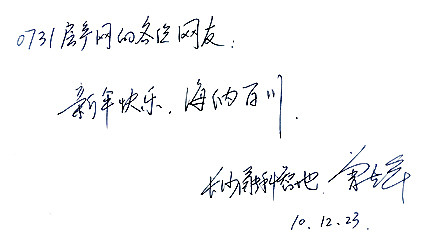 0731房产网的各位网友：
新年快乐，海纳百川.
长沙融科置地
10.12.23.